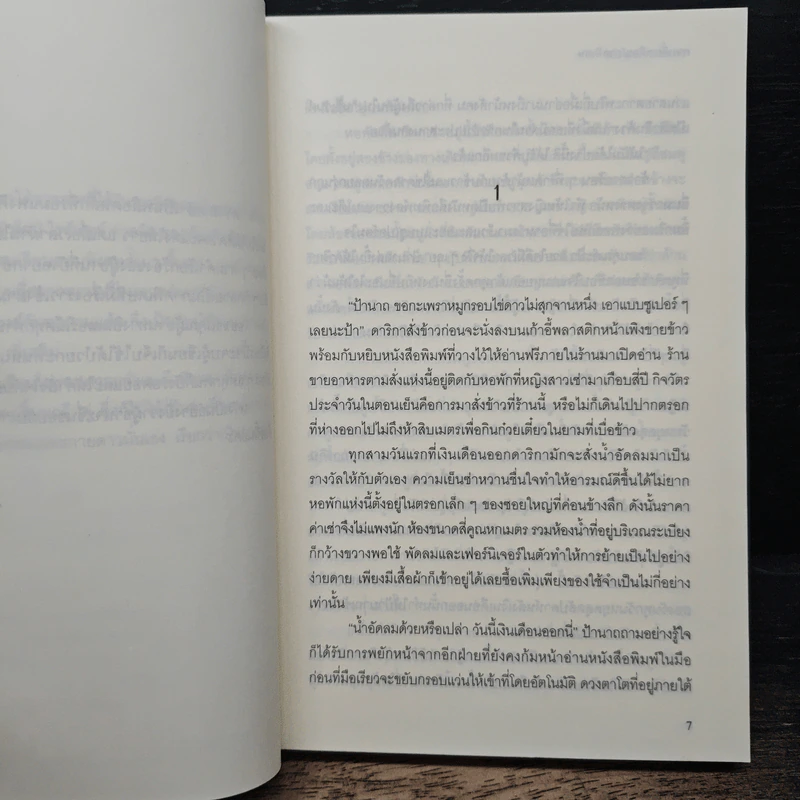 1
“ป้านาถ ขอกะเพราหมูกรอบไข่ดาวไม่สุกจานหนึ่ง เอาแบบซูเปอร์ ๆ
เลยนะป้า” ดาริกาสั่งข้าวก่อนจะนั่งลงบนเก้าอี้พลาสติกหน้าเพิงขายข้าว
พร้อมกับหยิบหนังสือพิมพ์ที่วางไว้ให้อ่านฟรีภายในร้านมาเปิดอ่าน ร้าน
ขายอาหารตามสั่งแห่งนี้อยู่ติดกับหอพักที่หญิงสาวเช่ามาเกือบสี่ปี กิจวัตร
ประจำวันในตอนเย็นคือการมาสั่งข้าวที่ร้านนี้ หรือไม่ก็เดินไปปากตรอก
ที่ห่างออกไปไม่ถึงห้าสิบเมตรเพื่อกินก๋วยเตี๋ยวในยามที่เบื่อข้าว
ทุกสามวันแรกที่เงินเดือนออกดาริกามักจะสั่งน้ำอัดลมมาเป็น
รางวัลให้กับตัวเอง ความเย็นซ่าหวานชื่นใจทำให้อารมณ์ดีขึ้นได้ไม่ยาก
หอพักแห่งนี้ตั้งอยู่ในตรอกเล็ก ๆ ของซอยใหญ่ที่ค่อนข้างลึก ดังนั้นราคา
ค่าเช่าจึงไม่แพงนัก ห้องขนาดสี่คูณหกเมตร รวมห้องน้ำที่อยู่บริเวณระเบียง
ก็กว้างขวางพอใช้ พัดลมและเฟอร์นิเจอร์ในตัวทำให้การย้ายเป็นไปอย่าง
ง่ายดาย เพียงมีเสื้อผ้าก็เข้าอยู่ได้เลยซื้อเพิ่มเพียงของใช้จำเป็นไม่กี่อย่าง
เท่านั้น
“น้ำอัดลมด้วยหรือเปล่า วันนี้เงินเดือนออกนี่” ป้านาถถามอย่างรู้ใจ
ก็ได้รับการพยักหน้าจากอีกฝ่ายที่ยังคงก้มหน้าอ่านหนังสือพิมพ์ในมือ
ก่อนที่มือเรียวจะขยับกรอบแว่นให้เข้าที่โดยอัตโนมัติ ดวงตาโตที่อยู่ภายใต้
7